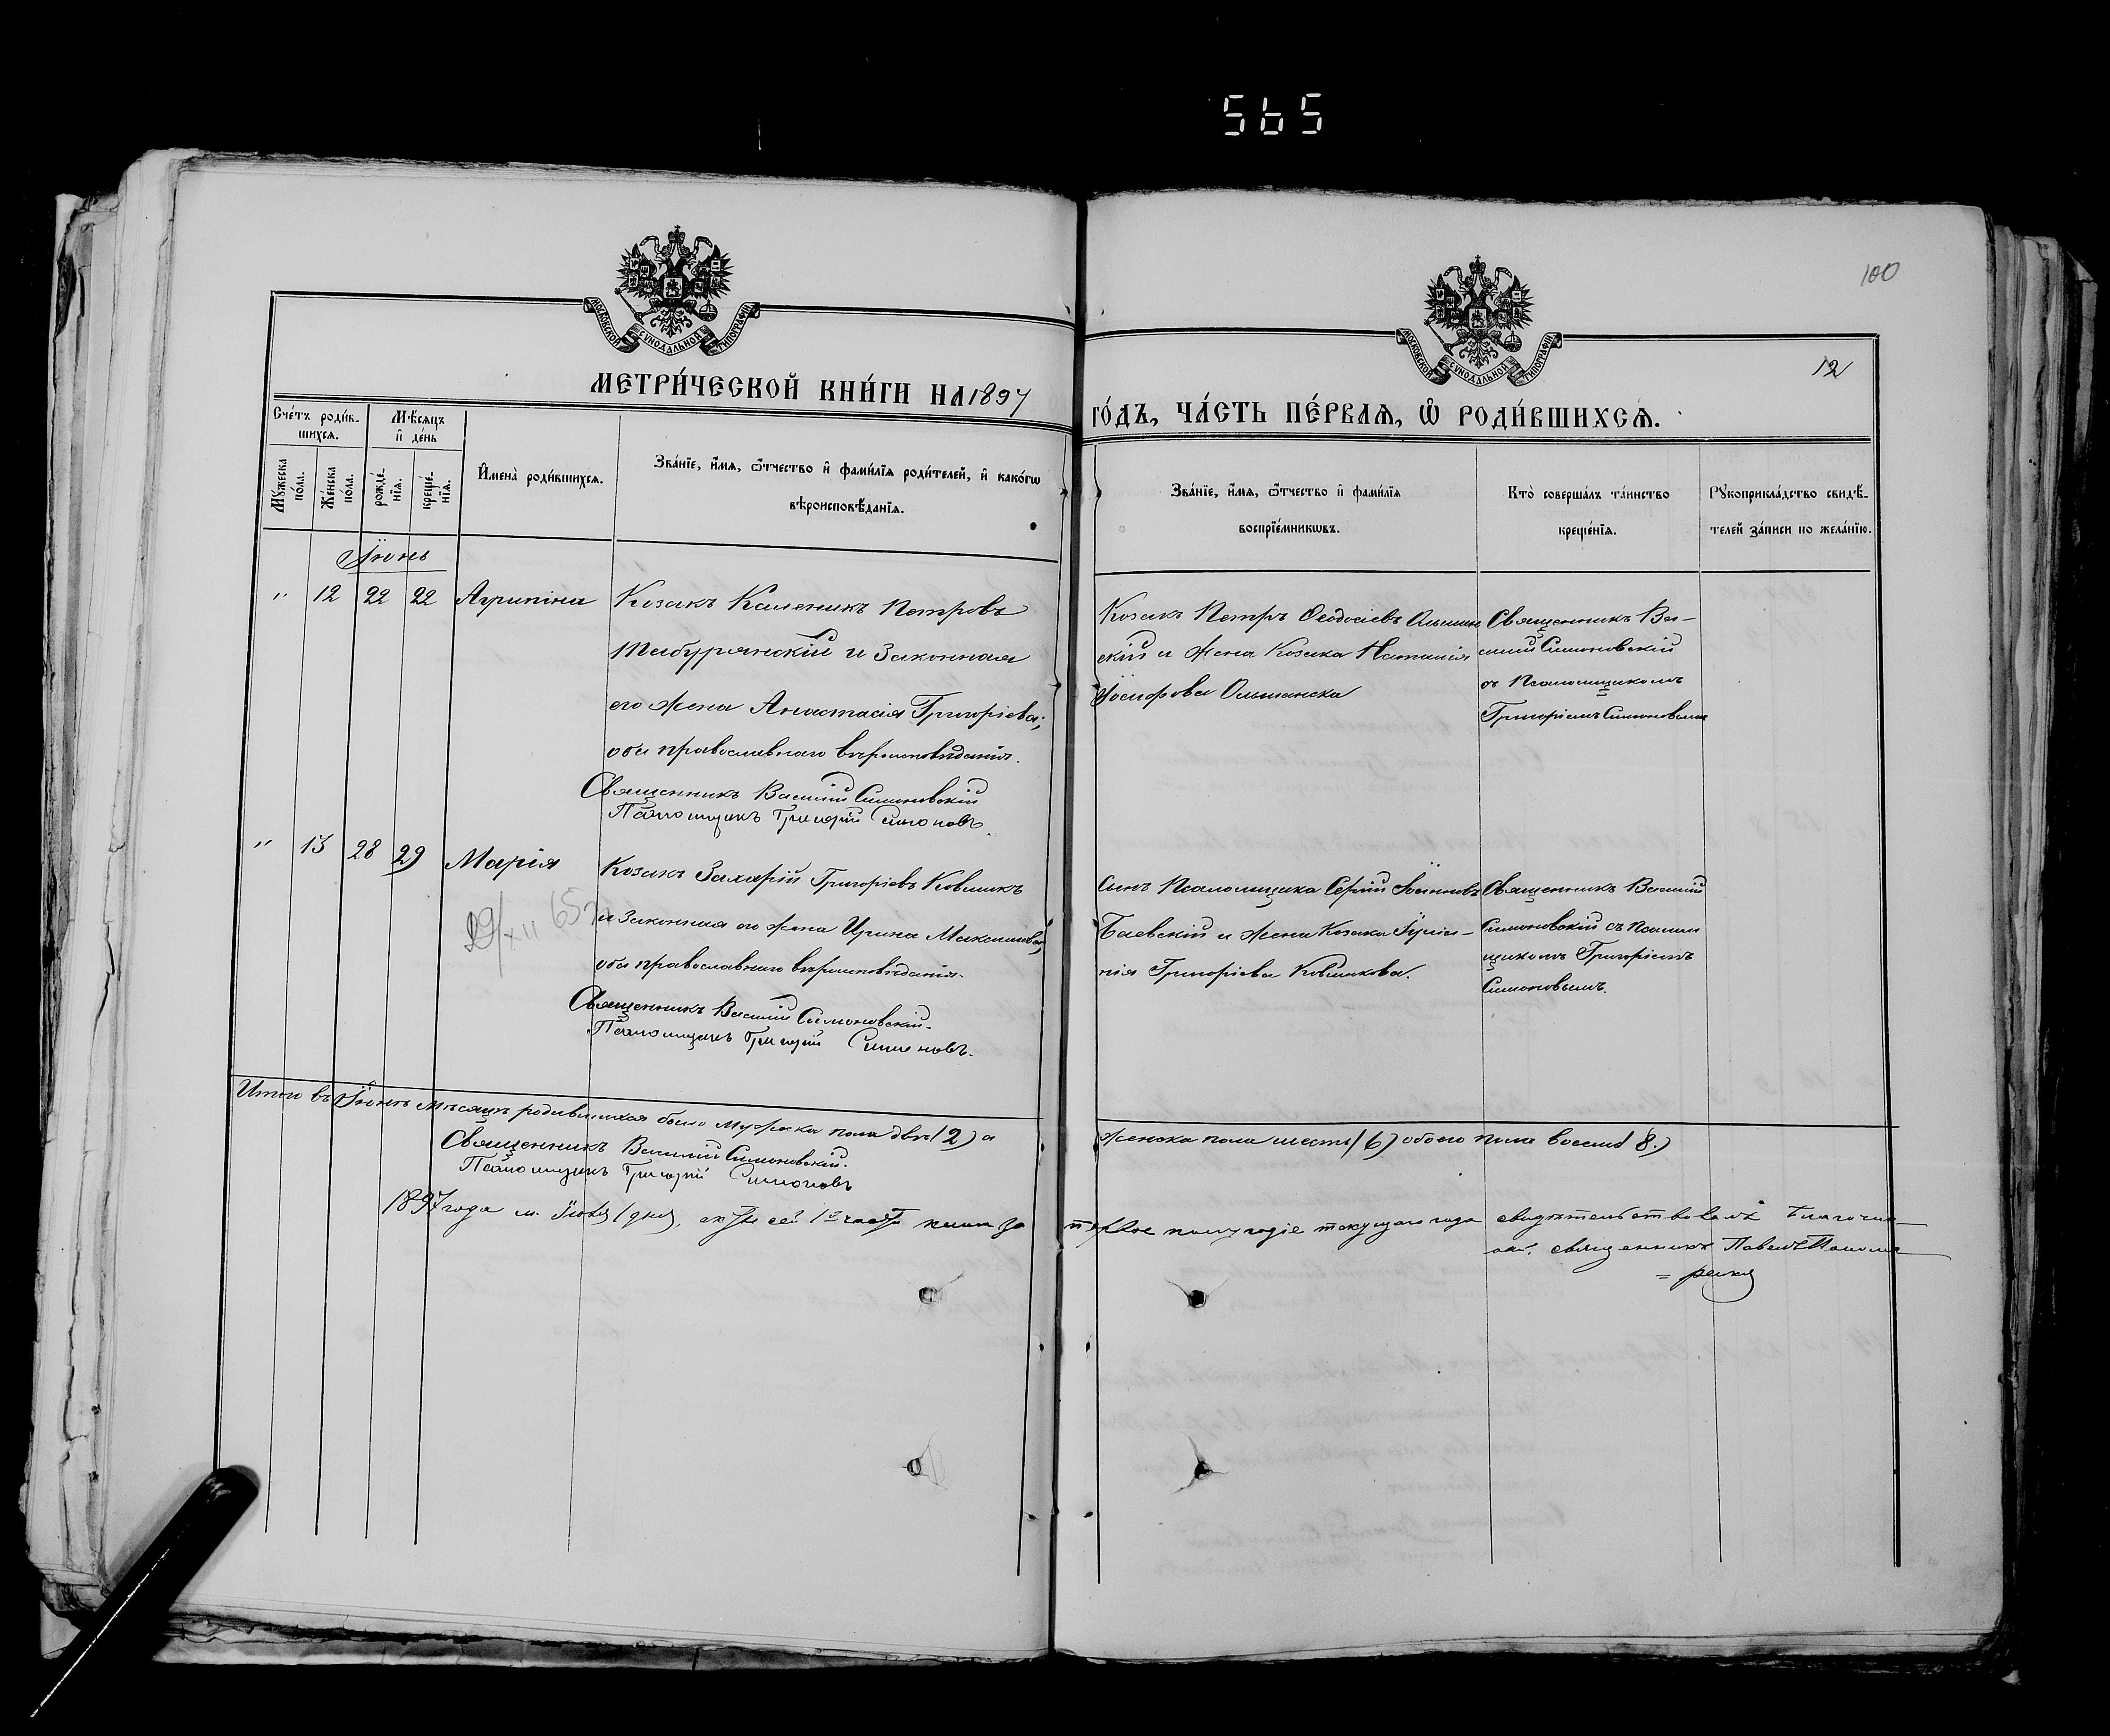 565
100
12
МОСКОВСКОЙ СУНОДАЛЬНОЙ ТИПОГРАФІИ
МОСКОВСКОЙ СУНОДАЛЬНОЙ ТИПОГРАФІИ
МЕТРИ́ЧЕСКОЙ КНИ́ГИ НА 1897
ГО́ДЪ, ЧА́СТЬ ПЕ́РВАѦ, Ѡ҆ РОДИ́ВШИХСѦ.
Сче́тъ роди́в-
шихсѧ.
Мѣ́сѧцъ
и҆ де́нь
Мꙋ́жеска по́ла.
Же́нска по́ла.
рожде́нїѧ.
креще́-нїѧ.
И҆мена̀ роди́вшихсѧ.
Зва́нїе, и҆́мѧ, ѻ҆́тчество и҆ фами́лїѧ роди́телей, и҆ како́гѡ
вѣроисповѣ́данїѧ.
Зва́нїе, и҆́мѧ, ѻ҆́тчество и҆ фами́лїѧ
воспрїе́мникѡвъ.
Кто̀ соверша́лъ та́инство
креще́нїѧ.
Рꙋкоприкла́дство свидѣ́-
телей за́писи по жела́нїю.
Іюнь
" 12 22 22 Агрипіна
Козакъ Каленикъ Петровъ
Табурянскій и законная
его жена Анастасія Григоріева;
оба православнаго вѣроисповѣданія.
Священникъ Василій Симоновскій
Псаломщикъ Григорій Симоновъ.
Козакъ Петръ Ѳеодосіевъ Ольшан
скій и жена козака Наталія
Іосифова Ольшанска
Священникъ Ва-
силій Симоновскій
съ Псаломщикомъ
Григоріемъ Симоновымъ
" 13 28 29 Марія
29/XII 65
Козакъ Захарій Григоріевъ Ковшикъ
и законная его жена Ирина Максимова,
оба православнаго вѣроисповѣданія.
Священникъ Василій Симоновскій.
Псаломщикъ Григорій Симоновъ.
Сынъ Псаломщика Сергій Іоанновъ
Баевскій и жена козака Іуліа-
нія Григоріева Ковшикова.
Священникъ Василій
Симоновскій съ Псалом
щикомъ Григоріемъ
Симоновымъ.
Итого въ Іюнѣ мѣсяцѣ родившихся было мужска пола два (2) а
женска пола шесть (6) обоего пола восемь (8.)
Священникъ Василій Симоновскій.
Псаломщикъ Григорій Симоновъ
1897 года м. Іюля 1 дня, акты сей 1й части книги за
первое полугодіе текущаго года свидѣтельствовалъ Благочин-
ный, священникъ Павелъ Поном
= ренко